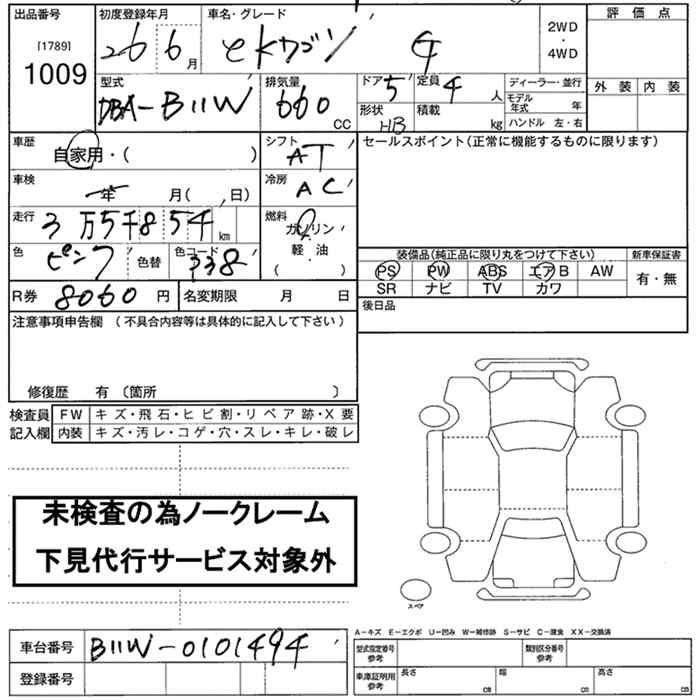 出品番号 初度登録年月 車名・グレード 評価点
[1789] 26 6月 eKワゴン G 2WD・4WD
1009
型式 排気量 ドア 5 定員 4人 ディーラー・並行 外装 内装
DBA-B11W 660 CC 形状 HB 積載 kg モデル年式 年
ハンドル 左・右
車歴 自家用・( ) シフト AT セールスポイント(正常に機能するものに限ります)
車検 年 月( 、日) 冷房 AC
走行 3万5千854km 燃料 ガソリン・軽・油 ( )
色 ピンク 色替 色コード 338 装備品(純正品に限り丸をつけて下さい) 新車保証書
PS PW ABS エアB AW 有・無
SR ナビ TV カワ
R券 8060円 名変期限 月 日 後日品
注意事項申告欄 (不具合内容等は具体的に記入して下さい)
修復歴 有 〔箇所 〕
検査員記入欄 FW キズ・飛石・ヒビ割・リペア跡・X要
内装 キズ・汚レ・コゲ・穴・スレ・キレ・破レ
未検査の為ノークレーム
下見代行サービス対象外
スペア
A−キズ E−エクボ U−凹み W−補修跡 S−サビ C−腐食 XX−交換済
車台番号 B11W-0101494 型式指定番号参考 類別区分番号参考
登録番号 車庫証明用参考 長さ cm 幅 cm 高さ cm